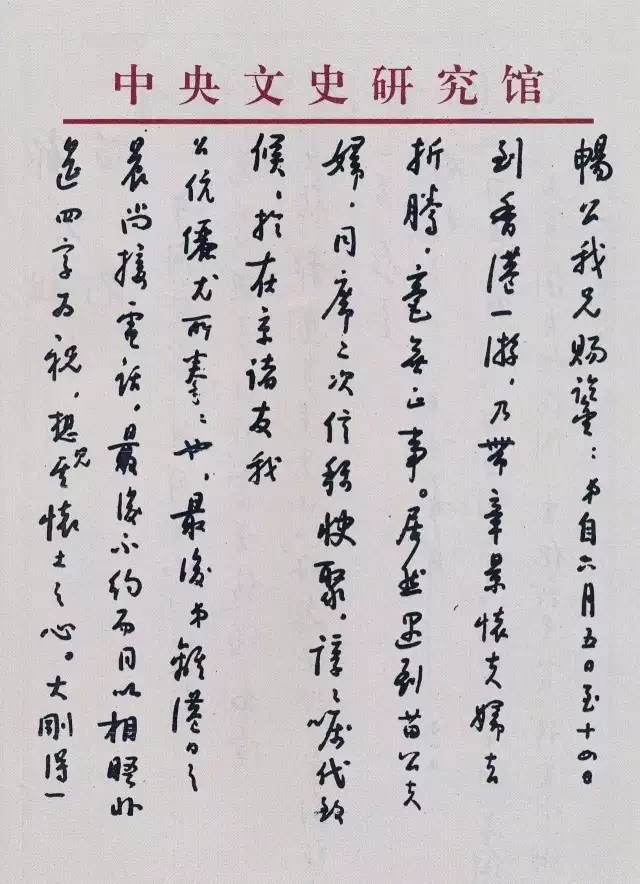 中央文史研究馆
暢公我兄賜鑒:弟自六月五日至十四日
到香港一游,乃帶章景懷夫婦去
折騰,毫無正事。居然遇到苗公夫
婦,同席二次信稱快聚,諄〻囑代致
候,於在京諸友我
公伉儷尤所拳〻也,最後弟離港日之
晨尚接電話,最後不約而同以相晤非
遙四字为祝,想見其懷土之心。大剛得一